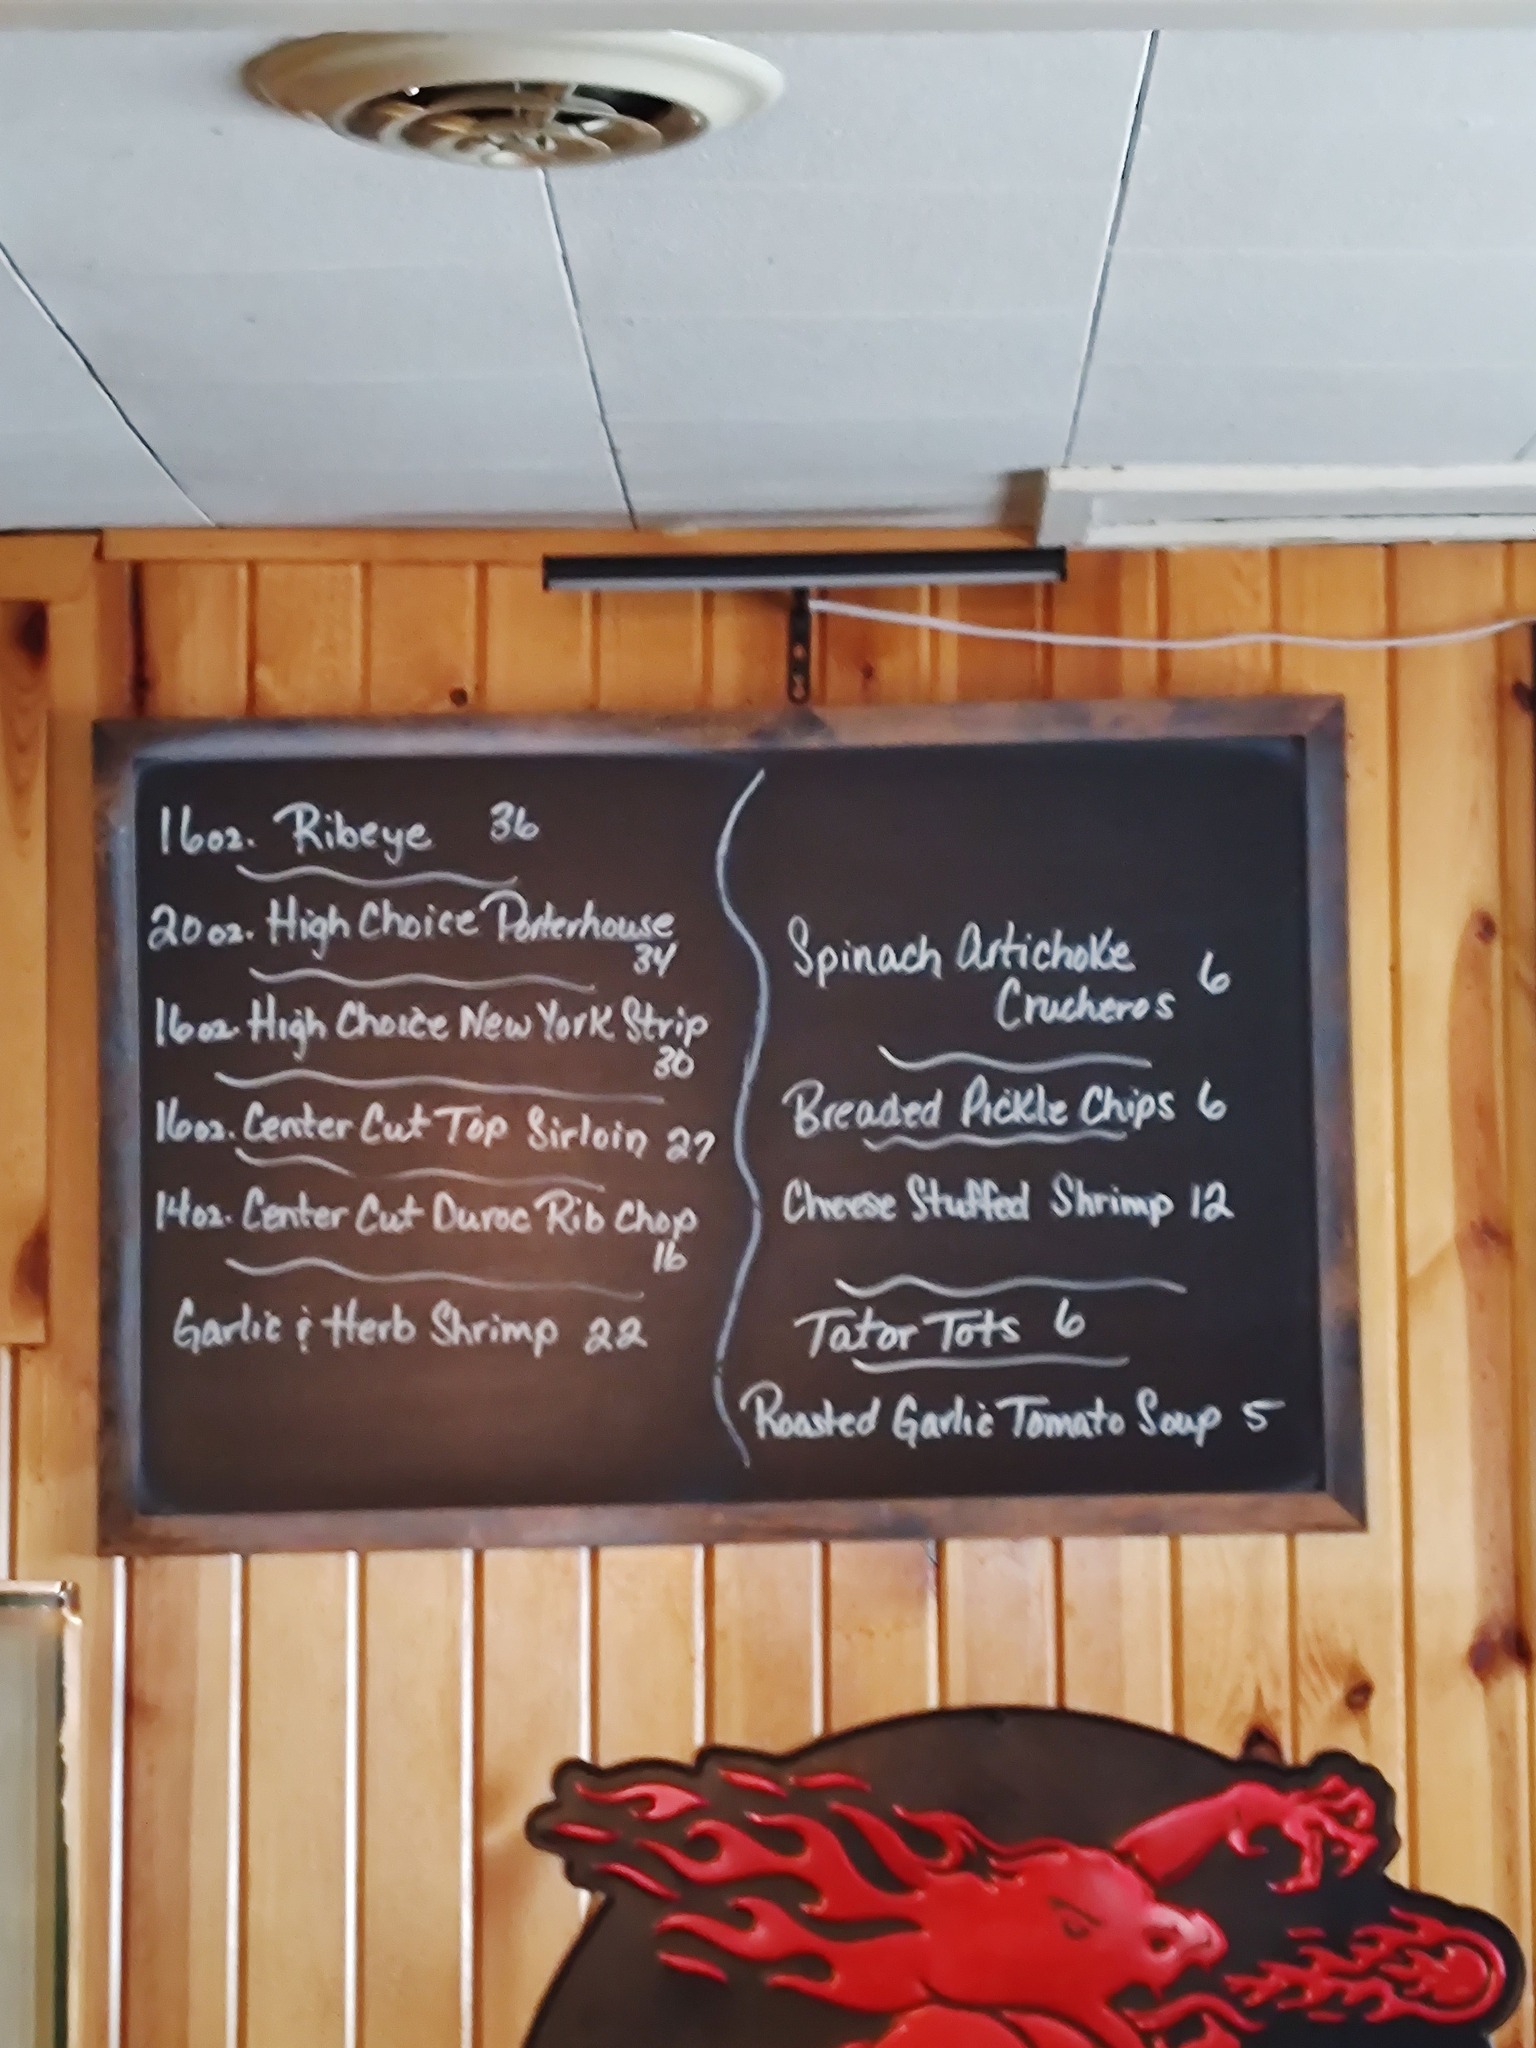 16oz. Ribeye 36
20oz. High Choice Porterhouse
34
16oz. High Choice New York Strip
30
16oz. Center Cut Top Sirloin 27
14oz. Center Cut Duroc Rib Chop
16
Garlic & Herb Shrimp 22
Spinach Artichoke
Crucheros 6
Breaded Pickle Chips 6
Cheese Stuffed Shrimp 12
Tator Tots 6
Roasted Garlic Tomato Soup 5